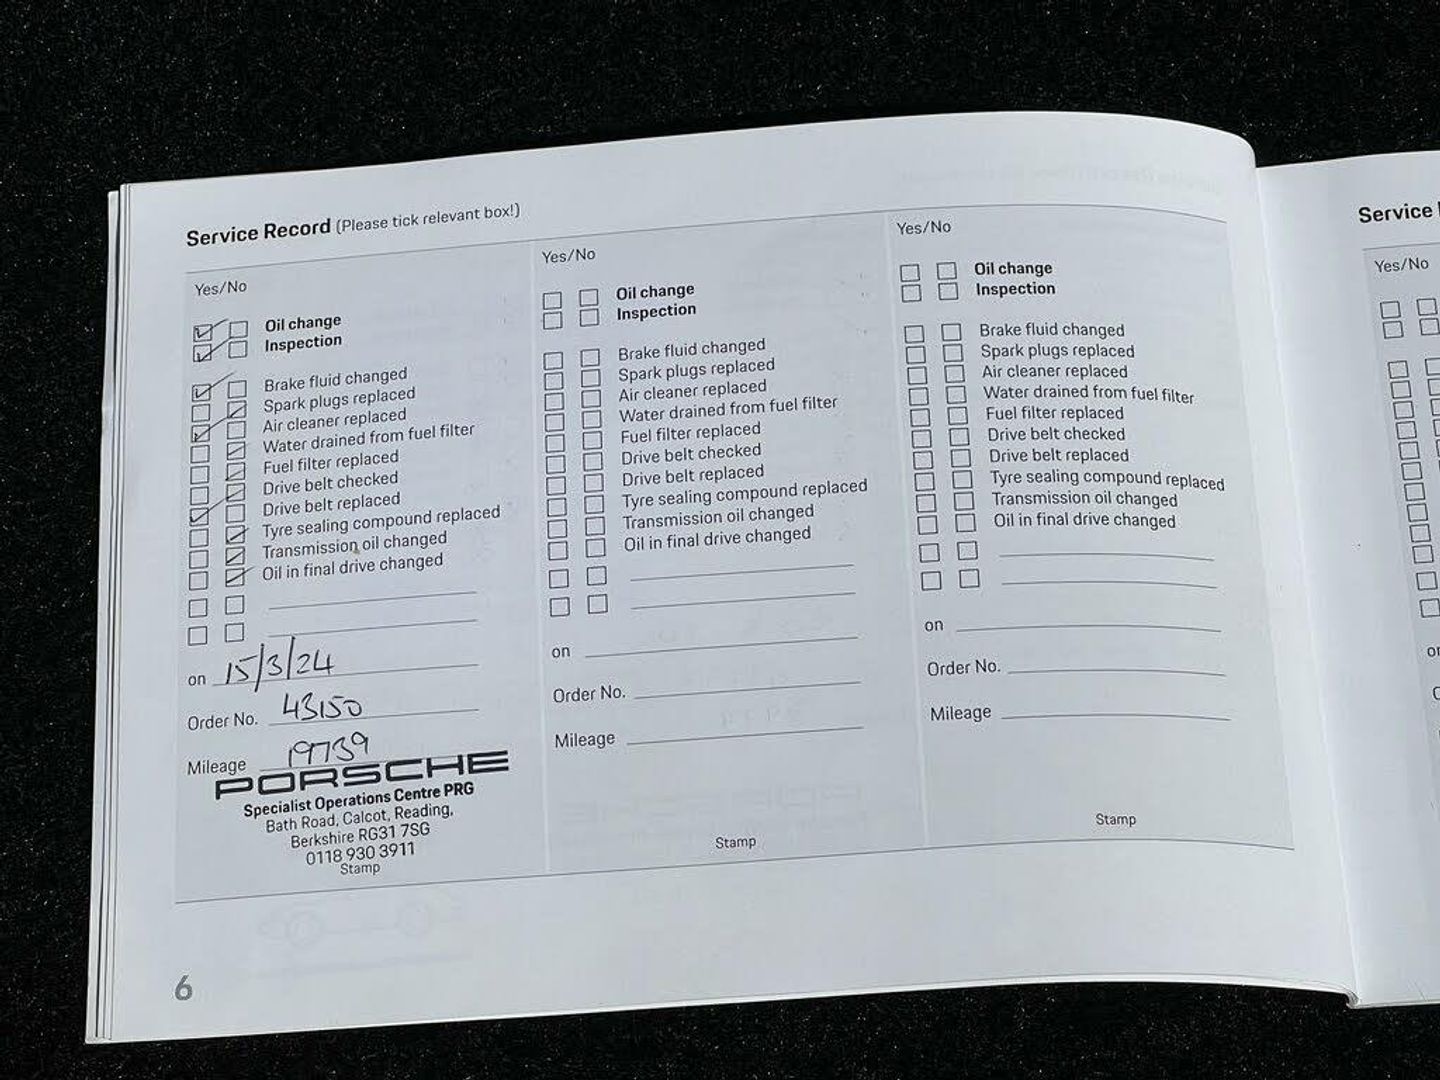 Service Record (Please tick relevant box!)
Yes/No
Oil change
Inspection
Brake fluid changed
Spark plugs replaced
Air cleaner replaced
Water drained from fuel filter
Fuel filter replaced
Drive belt checked
Drive belt replaced
Tyre sealing compound replaced
Transmission oil changed
Oil in final drive changed
on 15/3/24
Order No. 43150
Mileage 19739
PORSCHE
Specialist Operations Centre PRG
Bath Road, Calcot, Reading,
Berkshire RG31 7SG
0118 930 3911
Stamp
Yes/No
Oil change
Inspection
Brake fluid changed
Spark plugs replaced
Air cleaner replaced
Water drained from fuel filter
Fuel filter replaced
Drive belt checked
Drive belt replaced
Tyre sealing compound replaced
Transmission oil changed
Oil in final drive changed
on
Order No.
Mileage
Stamp
Yes/No
Oil change
Inspection
Brake fluid changed
Spark plugs replaced
Air cleaner replaced
Water drained from fuel filter
Fuel filter replaced
Drive belt checked
Drive belt replaced
Tyre sealing compound replaced
Transmission oil changed
Oil in final drive changed
on
Order No.
Mileage
Stamp
6
Service
Yes/No